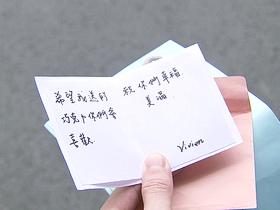 希望我送的
巧克力你們會
喜歡
祝你們幸福
美滿
Vivian